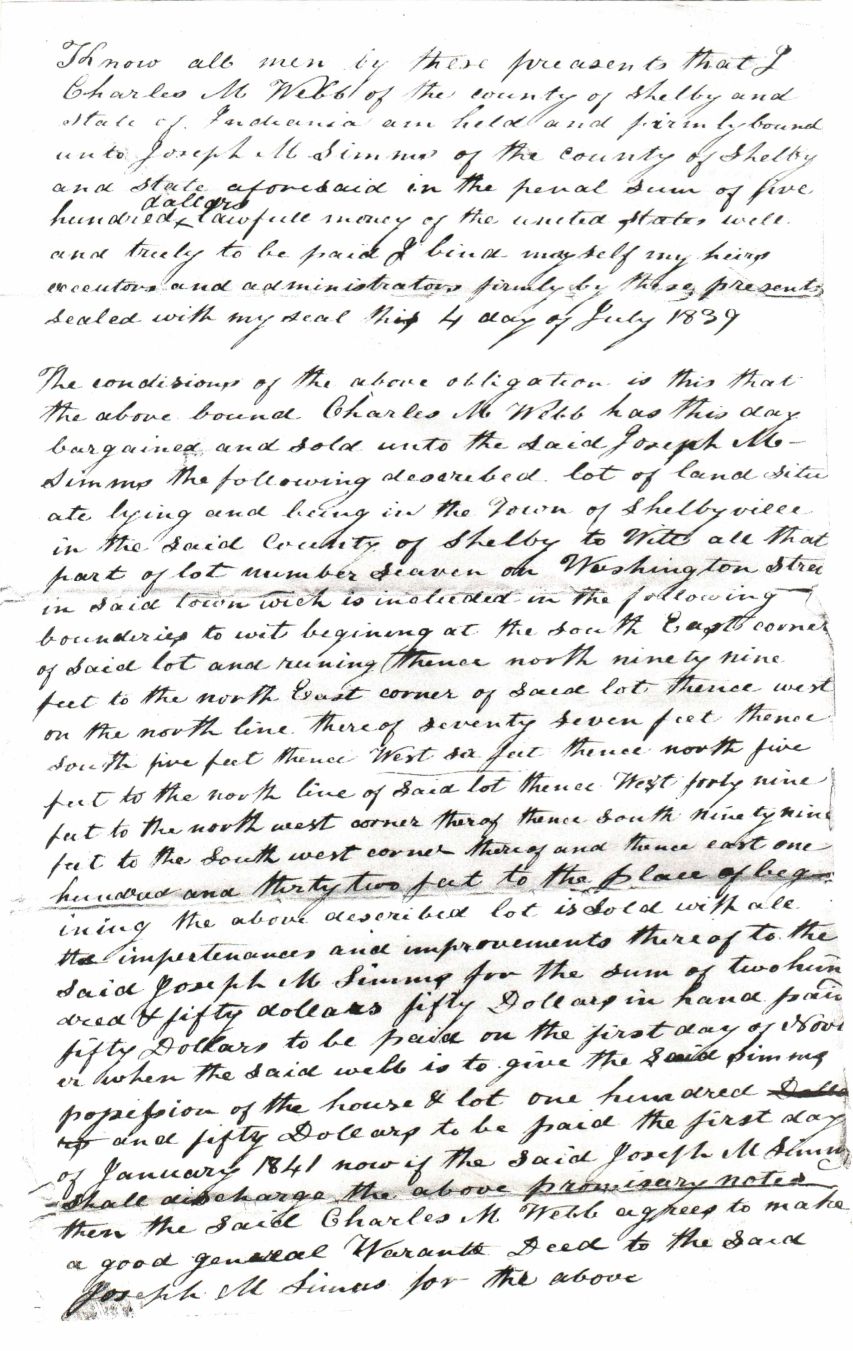 Know all men by these preasents that I
Charles M Webb of the county of Shelby and
state of Indiania am held and firmly bound
unto Joseph M Simms of the county of Shelby
and state aforesaid in the penal sum of five
dallars
hundred x lawfull money of the united states well
and truly to be paid I bind mayself my heirs
executors and administrators firmly by these presents
sealed with my seal this 4 day of July 1839
The condisions of the above obligation is this that
the above bound Charles M Webb has this day
bargained and sold unto the said Joseph M-
Simms the following described lot of land situ
ate lying and being in the Town of Shelbyville
in the said County of Shelby to Witt all that
part of lot number seaven on Washington Stree
in said town wich is included in the following
bounderies to wit begining at the south East corner
of said lot and runing thence north ninety nine
feet to the north East corner of said lot thence west
on the north line thereof seventy seven feet thence
south five feet thence West six feet thence north five
feet to the north line of said lot thence West forty nine
feet to the north west corner therof thence south ninety nine
feet to the south west corner thereof and thence east one
hundred and thirty two feet to the place of beg-
ining the above described lot is sold with all
the impertenances and improvements thereof to the
said Joseph M Simms for the sum of two hun
dred & fifty dollars fifty Dollars in hand paid
fifty Dollars to be paid on the first day of Nov
er when the said webb is to give the said simms
possession of the house & lot one hundred Dolla
rs and fifty Dollars to be paid the first day
of January 1841 now if the said Joseph M Simms
shall discharge the above promisary notes
then the said Charles M Webb agrees to make
a good general Warante Deed to the said
Joseph M Simms for the above